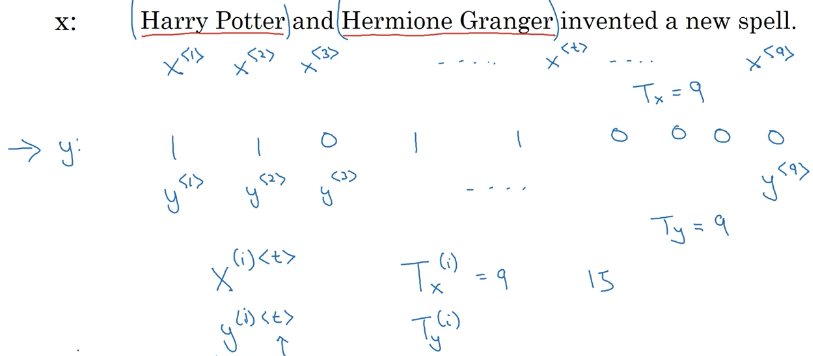 x: Harry Potter and Hermione Granger invented a new spell.
x<1> x<2> x<3> ..... x<t> .... x<9>
Tx = 9
→ y: 1 1 0 1 1 0 0 0 0
y<1> y<2> y<3> .... y<9>
Ty = 9
X(i)<t> Tx(i) = 9 15
y(i)<t> Ty(i)
↑